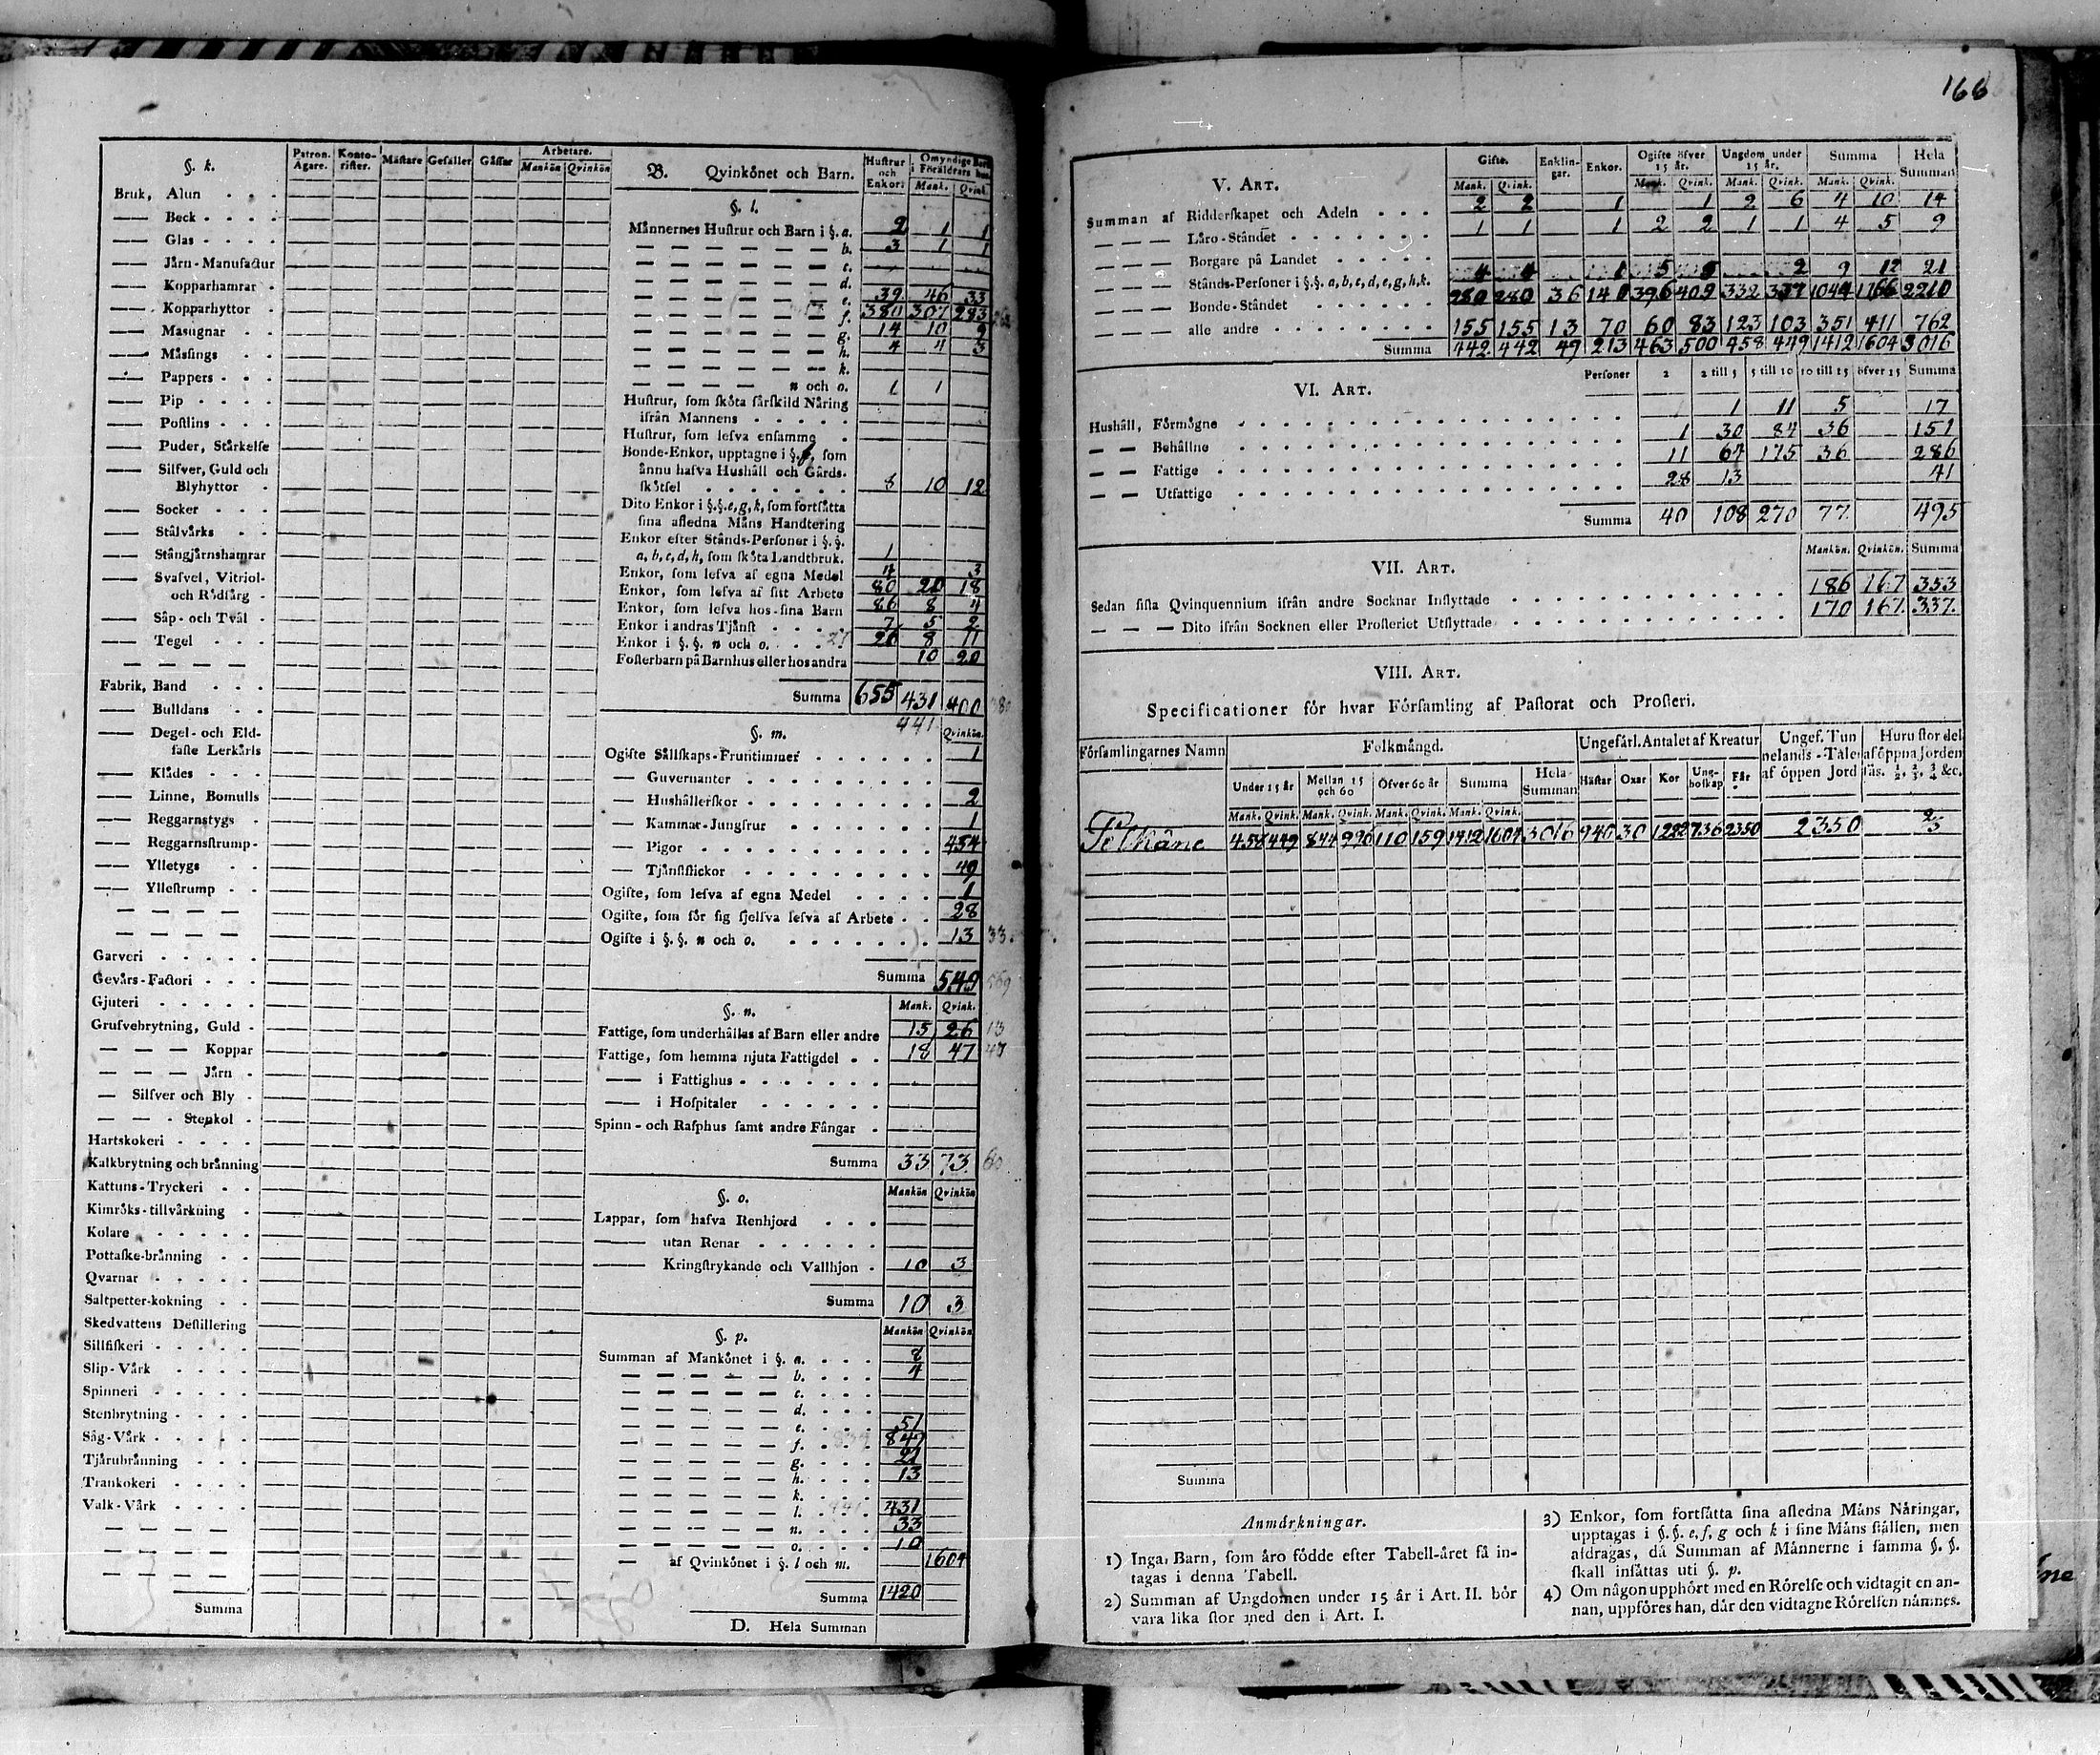 166
§. k.
Patron. Ägare. Konto-rister. Mästare Gesäller Gåssar Arbetare. Mankön Qvinkön
Bruk, Alun
Beck
Glas
Järn-Manufactur
Kopparhamrar
Kopparhyttor
Masugnar
Mässings
Pappers
Pip
Postlins
Puder, Stärkelse
Silfver, Guld och
Blyhyttor
Socker
Stålvärks
Stångjärnshamrar
Svafvel, Vitriol-
och Rödfärg
Såp- och Tvål
Tegel
Fabrik, Band
Bulldans
Degel- och Eld-
faste Lerkärls
Klädes
Linne, Bomulls
Reggarnstygs
Reggarnsstrump
Ylletygs
Yllestrump
Garveri
Gevärs-Factori
Gjuteri
Grufvebrytning, Guld
Koppar
Järn
Silfver och Bly
Stenkol
Hartskokeri
Kalkbrytning och bränning
Kattuns-Tryckeri
Kimröks-tillvärkning
Kolare
Pottaske-bränning
Qvarnar
Saltpetter-kokning
Skedvattens Destillering
Sillfiskeri
Slip-Värk
Spinneri
Stenbrytning
Såg-Värk
Tjärubränning
Trankokeri
Valk-Värk
Summa
B. Qvinkönet och Barn. Hustrur och Enkor: Omyndige Barn i Föräldrars hus. Mank. Qvink.
§. l.
Männernes Hustrur och Barn i §. a. 2 1 1
b. 3 1 1
c.
d.
e. 39 46 33
f. 380 307 283
g. 14 10 9
h. 4 4 3
k.
n och o. 1 1
Hustrur, som sköta särskild Näring
ifrån Mannens
Hustrur, som lefva ensamme
Bonde-Enkor, upptagne i §. f, som
ännu hafva Hushåll och Gårds-
skötsel 8 10 12
Dito Enkor i §.§. e, g, k, som fortsätta
sina afledna Mäns Handtering
Enkor efter Stånds-Personer i §.§.
a, b, c, d, h, som sköta Landtbruk. 1
Enkor, som lefva af egna Medel 4 3
Enkor, som lefva af sitt Arbete 80 20 18
Enkor, som lefva hos sina Barn 86 8 4
Enkor i andras Tjänst 7 5 2
Enkor i §.§. n och o. 27 26 8 11
Fosterbarn på Barnhus eller hos andra 10 20
Summa 655 431 400
441
§. m. Qvinkön.
Ogifte Sällskaps-Fruntimmer 1
Guvernanter
Hushållerskor 2
Kammar-Jungfrur 1
Pigor 454
Tjänstflickor 49
Ogifte, som lefva af egna Medel 1
Ogifte, som för sig sjelfva lefva af Arbete 28
Ogifte i §.§. n och o. 13 33.
Summa 549 569
§. n. Mank. Qvink.
Fattige, som underhållas af Barn eller andre 15 26 13
Fattige, som hemma njuta Fattigdel 18 47 47
i Fattighus
i Hospitaler
Spinn- och Rasphus samt andre Fångar
Summa 33 73 60
§. o. Mankön Qvinkön
Lappar, som hafva Renhjord
utan Renar
Kringstrykande och Vallhjon 10 3
Summa 10 3
§. p. Mankön Qvinkön
Summan af Mankönet i §. a. 8
b. 4
c.
d.
e. 51
f. 847
g. 21
h. 13
k.
l. 431
n. 33
o. 10
af Qvinkönet i §. l och m. 1604
Summa 1420
D. Hela Summan
V. Art.
Gifte. Mank. Qvink. Enklin-gar. Enkor. Ogifte öfver 15 år. Mank. Qvink. Ungdom under 15 år. Mank. Qvink. Summa Mank. Qvink. Hela Summan
Summan af Ridderskapet och Adeln 2 2 1 1 2 6 4 10 14
Läro-Ståndet 1 1 1 2 2 1 1 4 5 9
Borgare på Landet
Stånds-Personer i §.§. a, b, c, d, e, g, h, k. 4 4 1 5 5 2 9 12 21
Bonde-Ståndet 280 280 36 140 396 409 332 337 1044 1166 2210
alle andre 155 155 13 70 60 83 123 103 351 411 762
Summa 442 442 49 213 463 500 458 449 1412 1604 3016
VI. Art.
Personer 2 2 till 5 5 till 10 10 till 15 öfver 15 Summa
Hushåll, Förmögne 1 11 5 17
Behållne 1 30 84 36 151
Fattige 11 64 175 36 286
Utfattige 28 13 41
Summa 40 108 270 77 495
VII. Art.
Mankön. Qvinkön. Summa
Sedan sista Qvinquennium ifrån andre Socknar Inflyttade 186 167 353
Dito ifrån Socknen eller Prosteriet Utflyttade 170 167 337.
VIII. Art.
Specificationer för hvar Församling af Pastorat och Prosteri.
Församlingarnes Namn Folkmängd. Ungefärl. Antalet af Kreatur Ungef. Tunnelands-Tale af öppen Jord Huru stor del af öppna Jorden säs. 1/2, 2/3, 3/4 &c.
Under 15 år Mellan 15 och 60 Öfver 60 år Summa Hela Summan Hästar Oxar Kor Ung-boskap Får
Mank. Qvink. Mank. Qvink. Mank. Qvink. Mank. Qvink.
458 449 844 996 110 159 1412 1604 3016 940 30 1282 736 2350 2350 2/3
Summa
Anmärkningar.
1) Inga Barn, som äro födde efter Tabell-året få in-
tagas i denna Tabell.
2) Summan af Ungdomen under 15 år i Art. II. bör
vara lika stor med den i Art. I.
3) Enkor, som fortsätta sina afledna Mäns Näringar,
upptagas i §.§. e, f, g och k i sine Mäns ställen, men
afdragas, då Summan af Männerne i samma §.§.
skall insättas uti §. p.
4) Om någon upphört med en Rörelse och vidtagit en an-
nan, uppföres han, där den vidtagne Rörelsen nämnes.